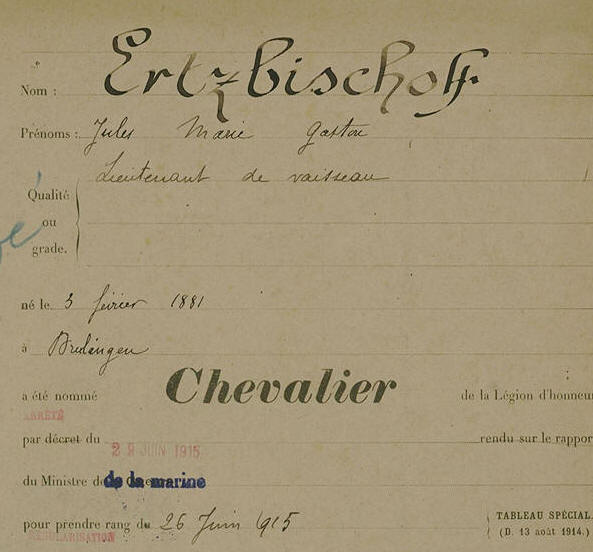 Nom : Ertzbischoff.
Prénoms : Jules Marie Gaston
Lieutenant de vaisseau
Qualité
ou
grade.
né le 3 février 1881
à Brulangen
a été nommé Chevalier de la Légion d'honneur
ARRÊTÉ
par décret du 29 JUIN 1915 rendu sur le rappor
du Ministre de la marine
pour prendre rang du 26 Juin 1915
RÉGULARISATION
TABLEAU SPÉCIAL.
(D. 13 août 1914.)